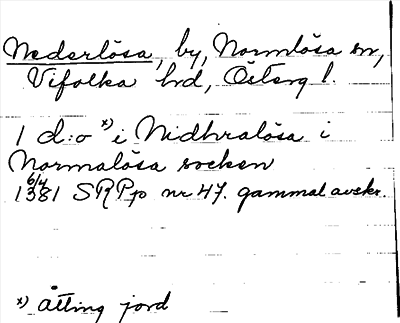 Nederlösa, by, Normlösa sn,
Vifolka hd, Österg l.
1 d:o x) i Nidhralösa i
Normalösa socken
6/4
1381 SRPp nr 47. gammal avskr.
x) Åtting jord